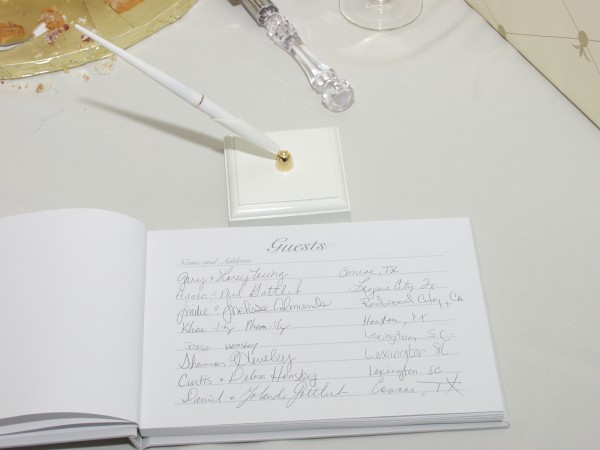 Guests
Name and Address
Gary & Young Conroe, TX
Gottlieb League City Tx
Andie & Melissa Edmonds Redwood City, CA
Khoa -lity Phom-ily Houston, TX
Jesse Hensley Lexington SC
Shannon Hensley Lexington SC
Curtis & Hensley Lexington SC
Daniel & Yolanda Gottlieb Conroe, TX